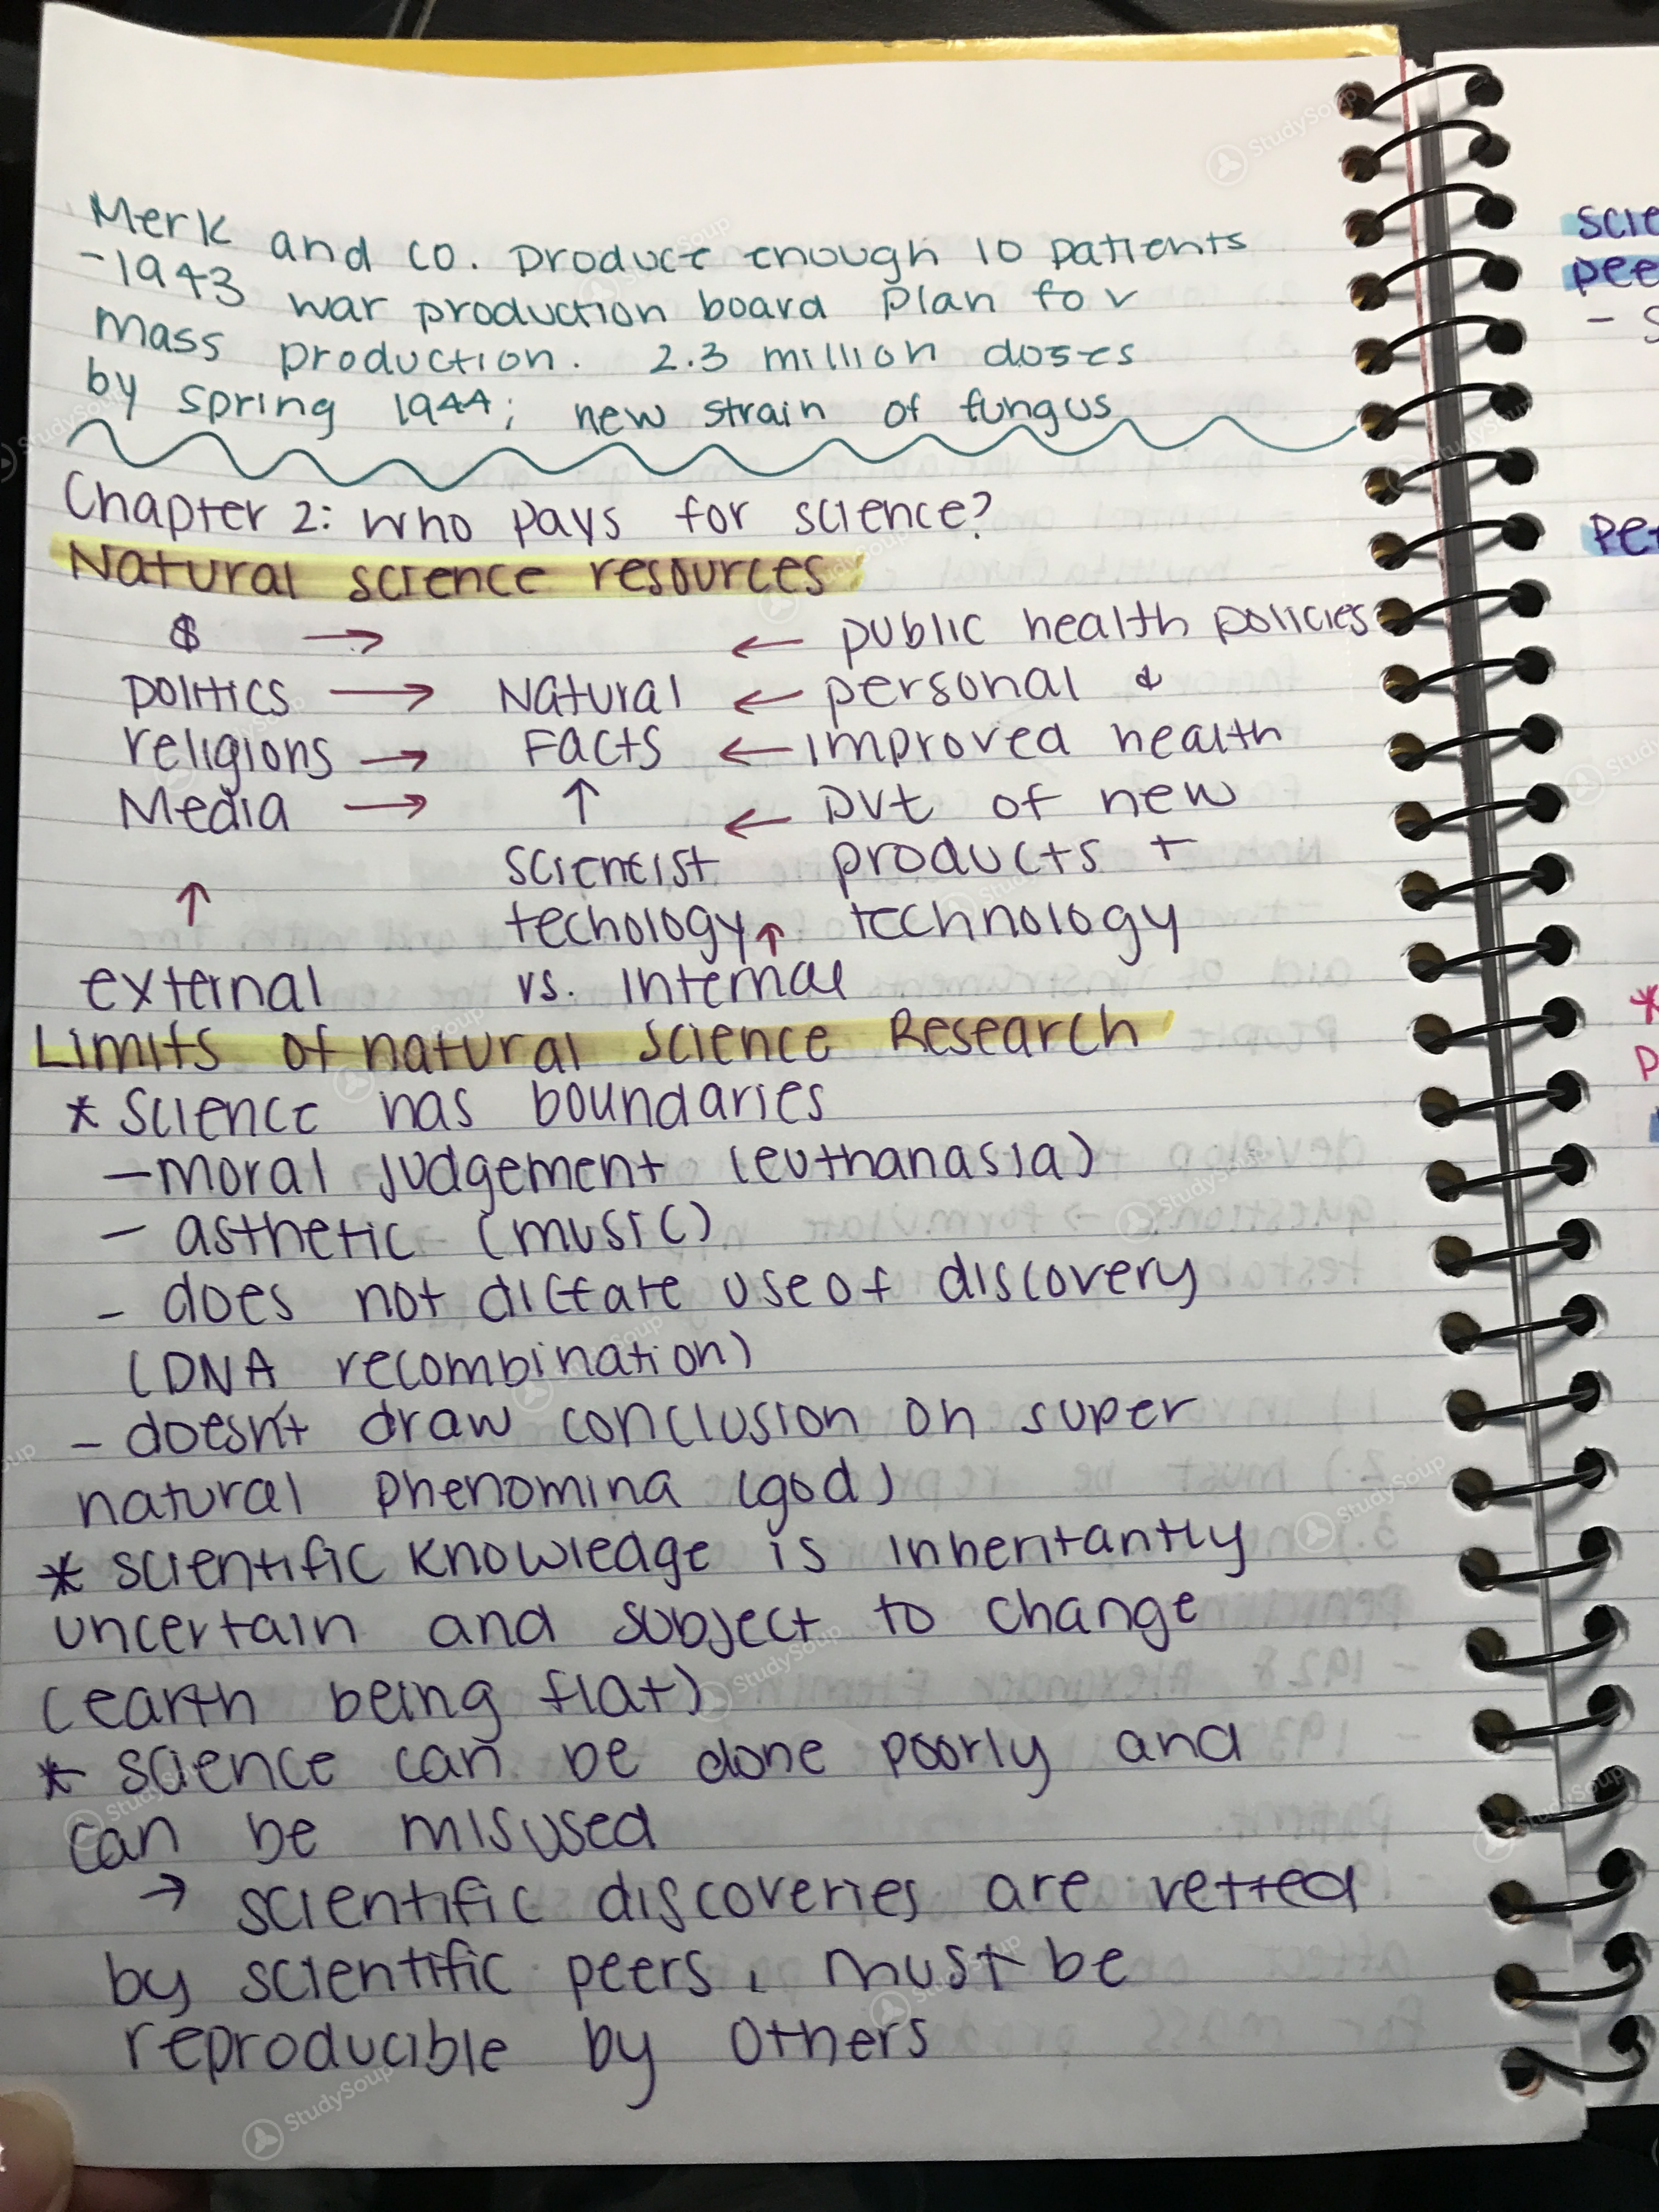 Merk and co. produce enough 10 patients
-1943 war production board plan for
mass production. 2.3 million doses
by spring 1944; new strain of fungus
Chapter 2: Who pays for science?
Natural science resources
$ → ← public health policies
politics → Natural ← personal &
religions → Facts ← improved health
Media → ↑ ← dvt of new
↑ scientist products +
techology ↑ technology
external vs. internal
Limits of natural science Research
* Science has boundaries
- moral judgement (euthanasia)
- asthetic (music)
- does not dictate use of discovery
(DNA recombination)
- doesn't draw conclusion on super
natural phenomina (god)
* scientific knowledge is inheritantly
uncertain and subject to change
(earth being flat)
* science can be done poorly and
can be misused
→ scientific discoveries are vetted
by scientific peers, must be
reproducible by others
StudySoup